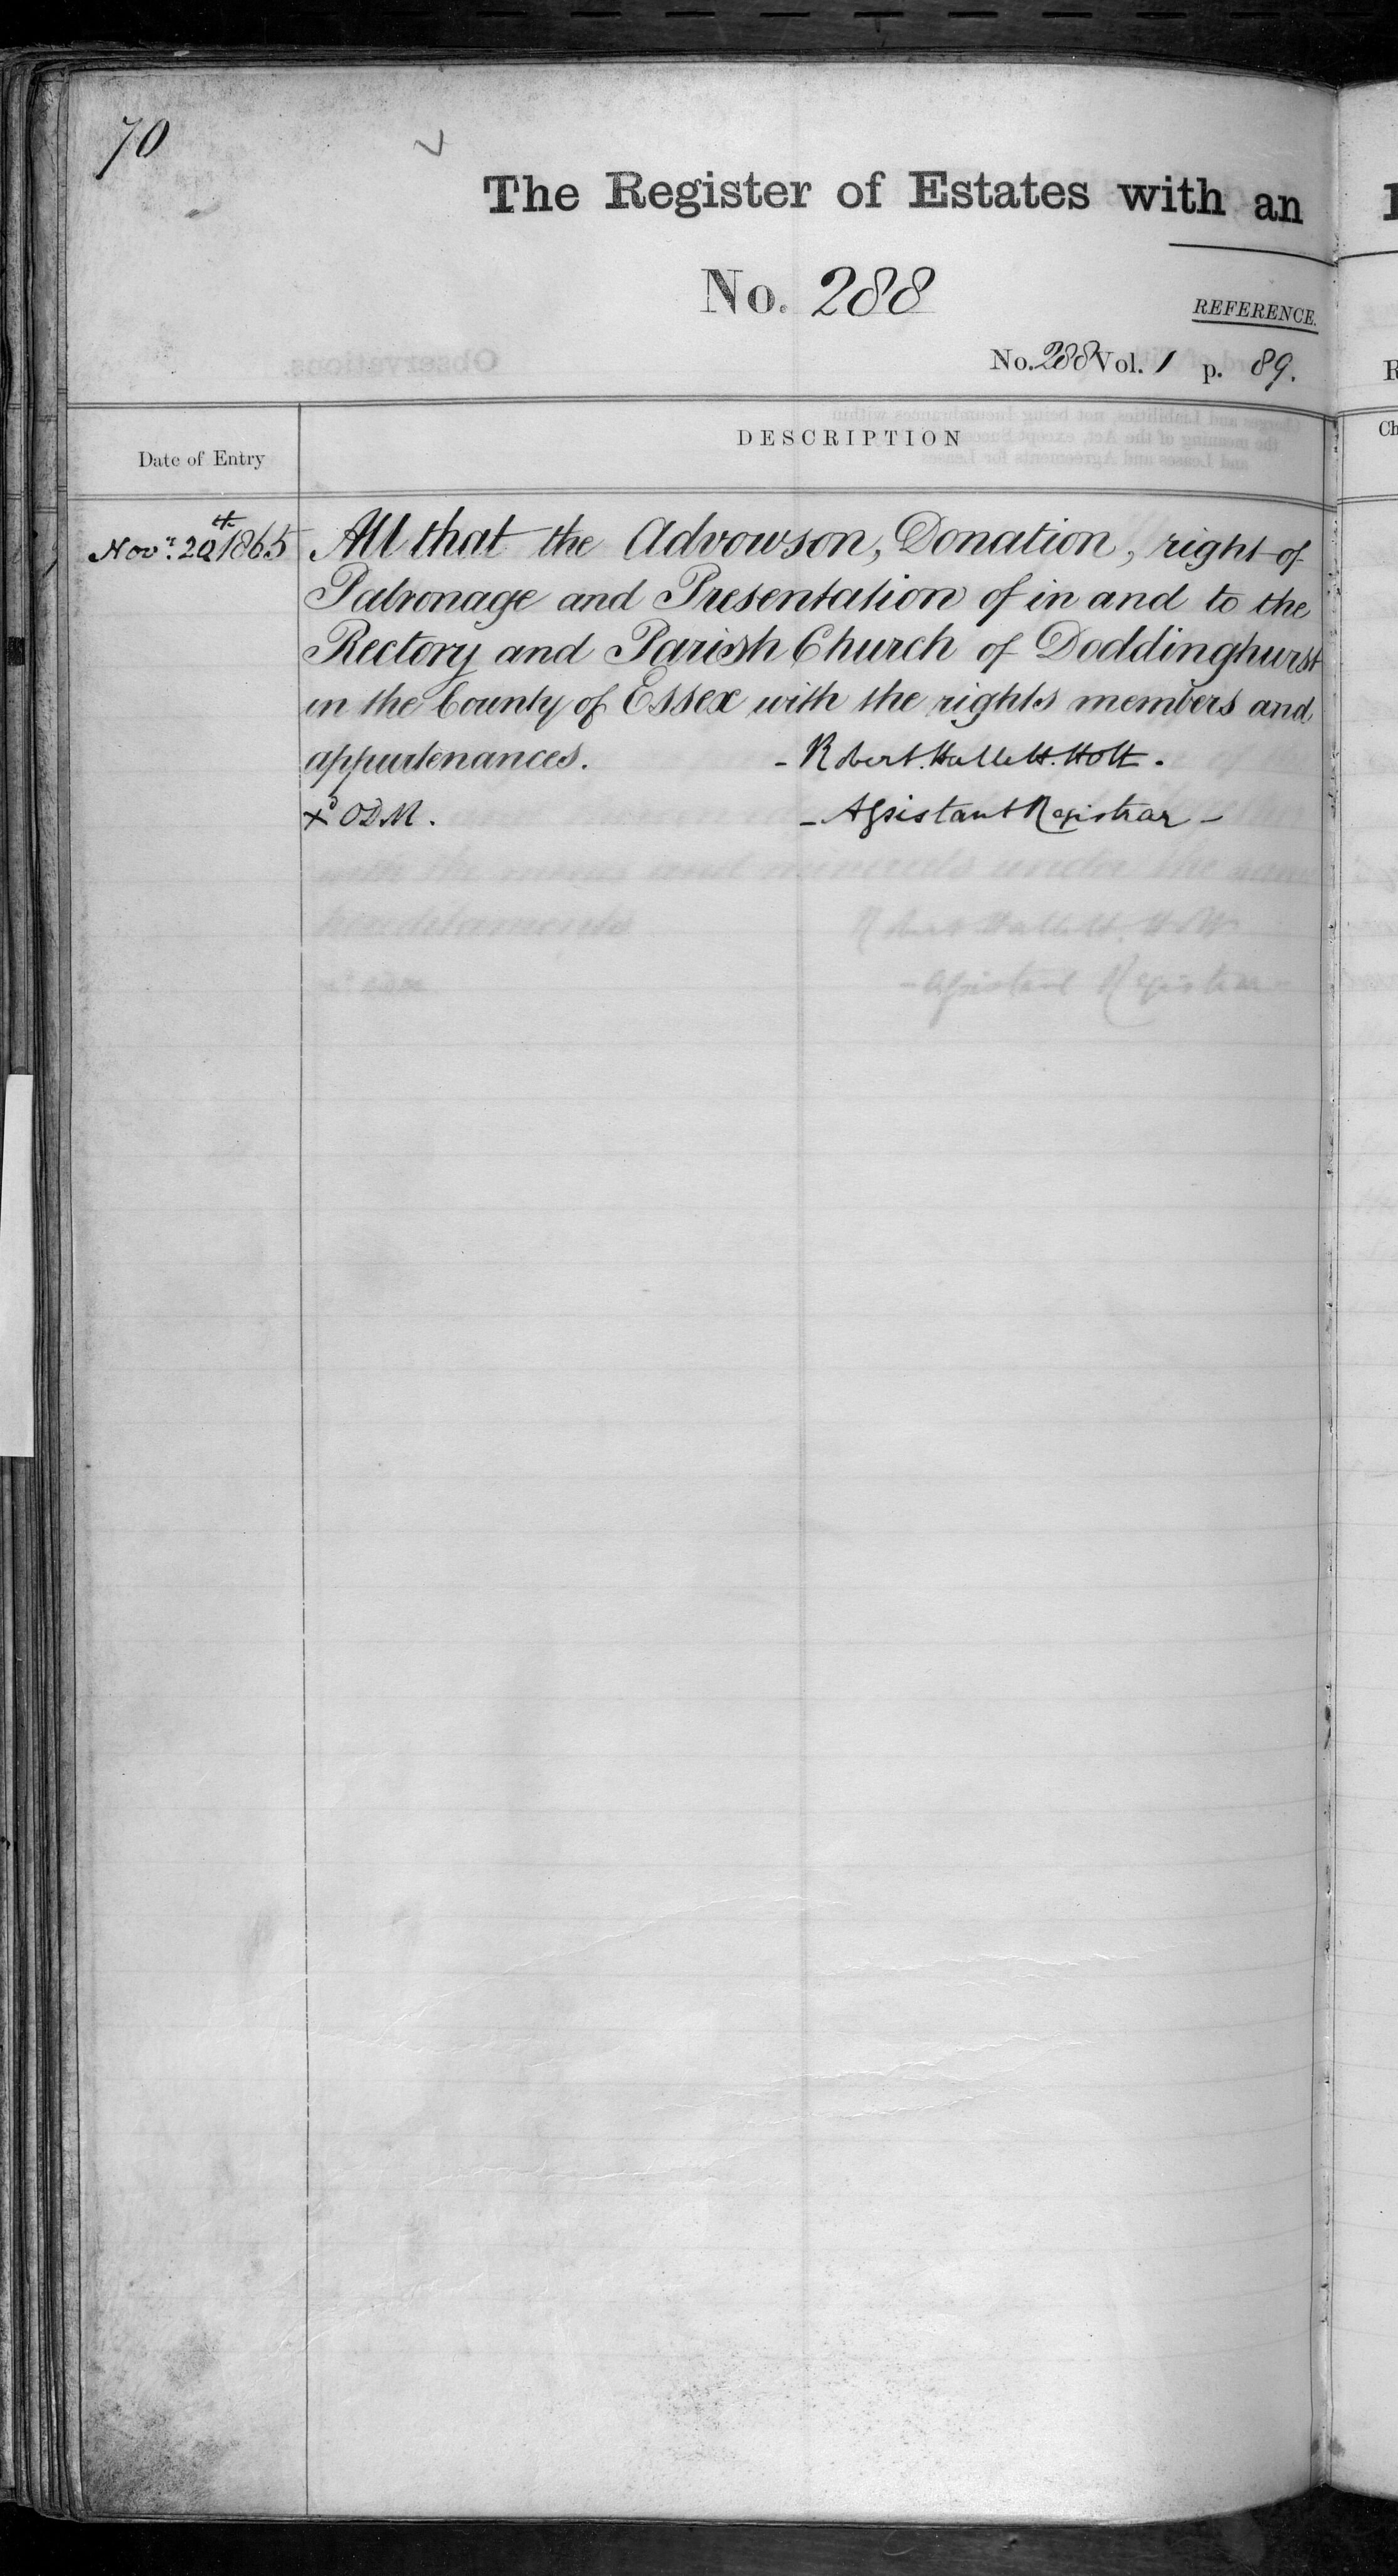 70
The Register of Estates with an
No. 288
REFERENCE.
No. 288 Vol. 1 p. 89.
Date of Entry
DESCRIPTION
Novr. 20th 1865
All that the Advowson, Donation, right of
Patronage and Presentation of in and to the
Rectory and Parish Church of Doddinghurst
in the County of Essex with the rights members and
appurtenances.
- Robert. Hallett. Holt -
xd ODM.
- Assistant Registrar -